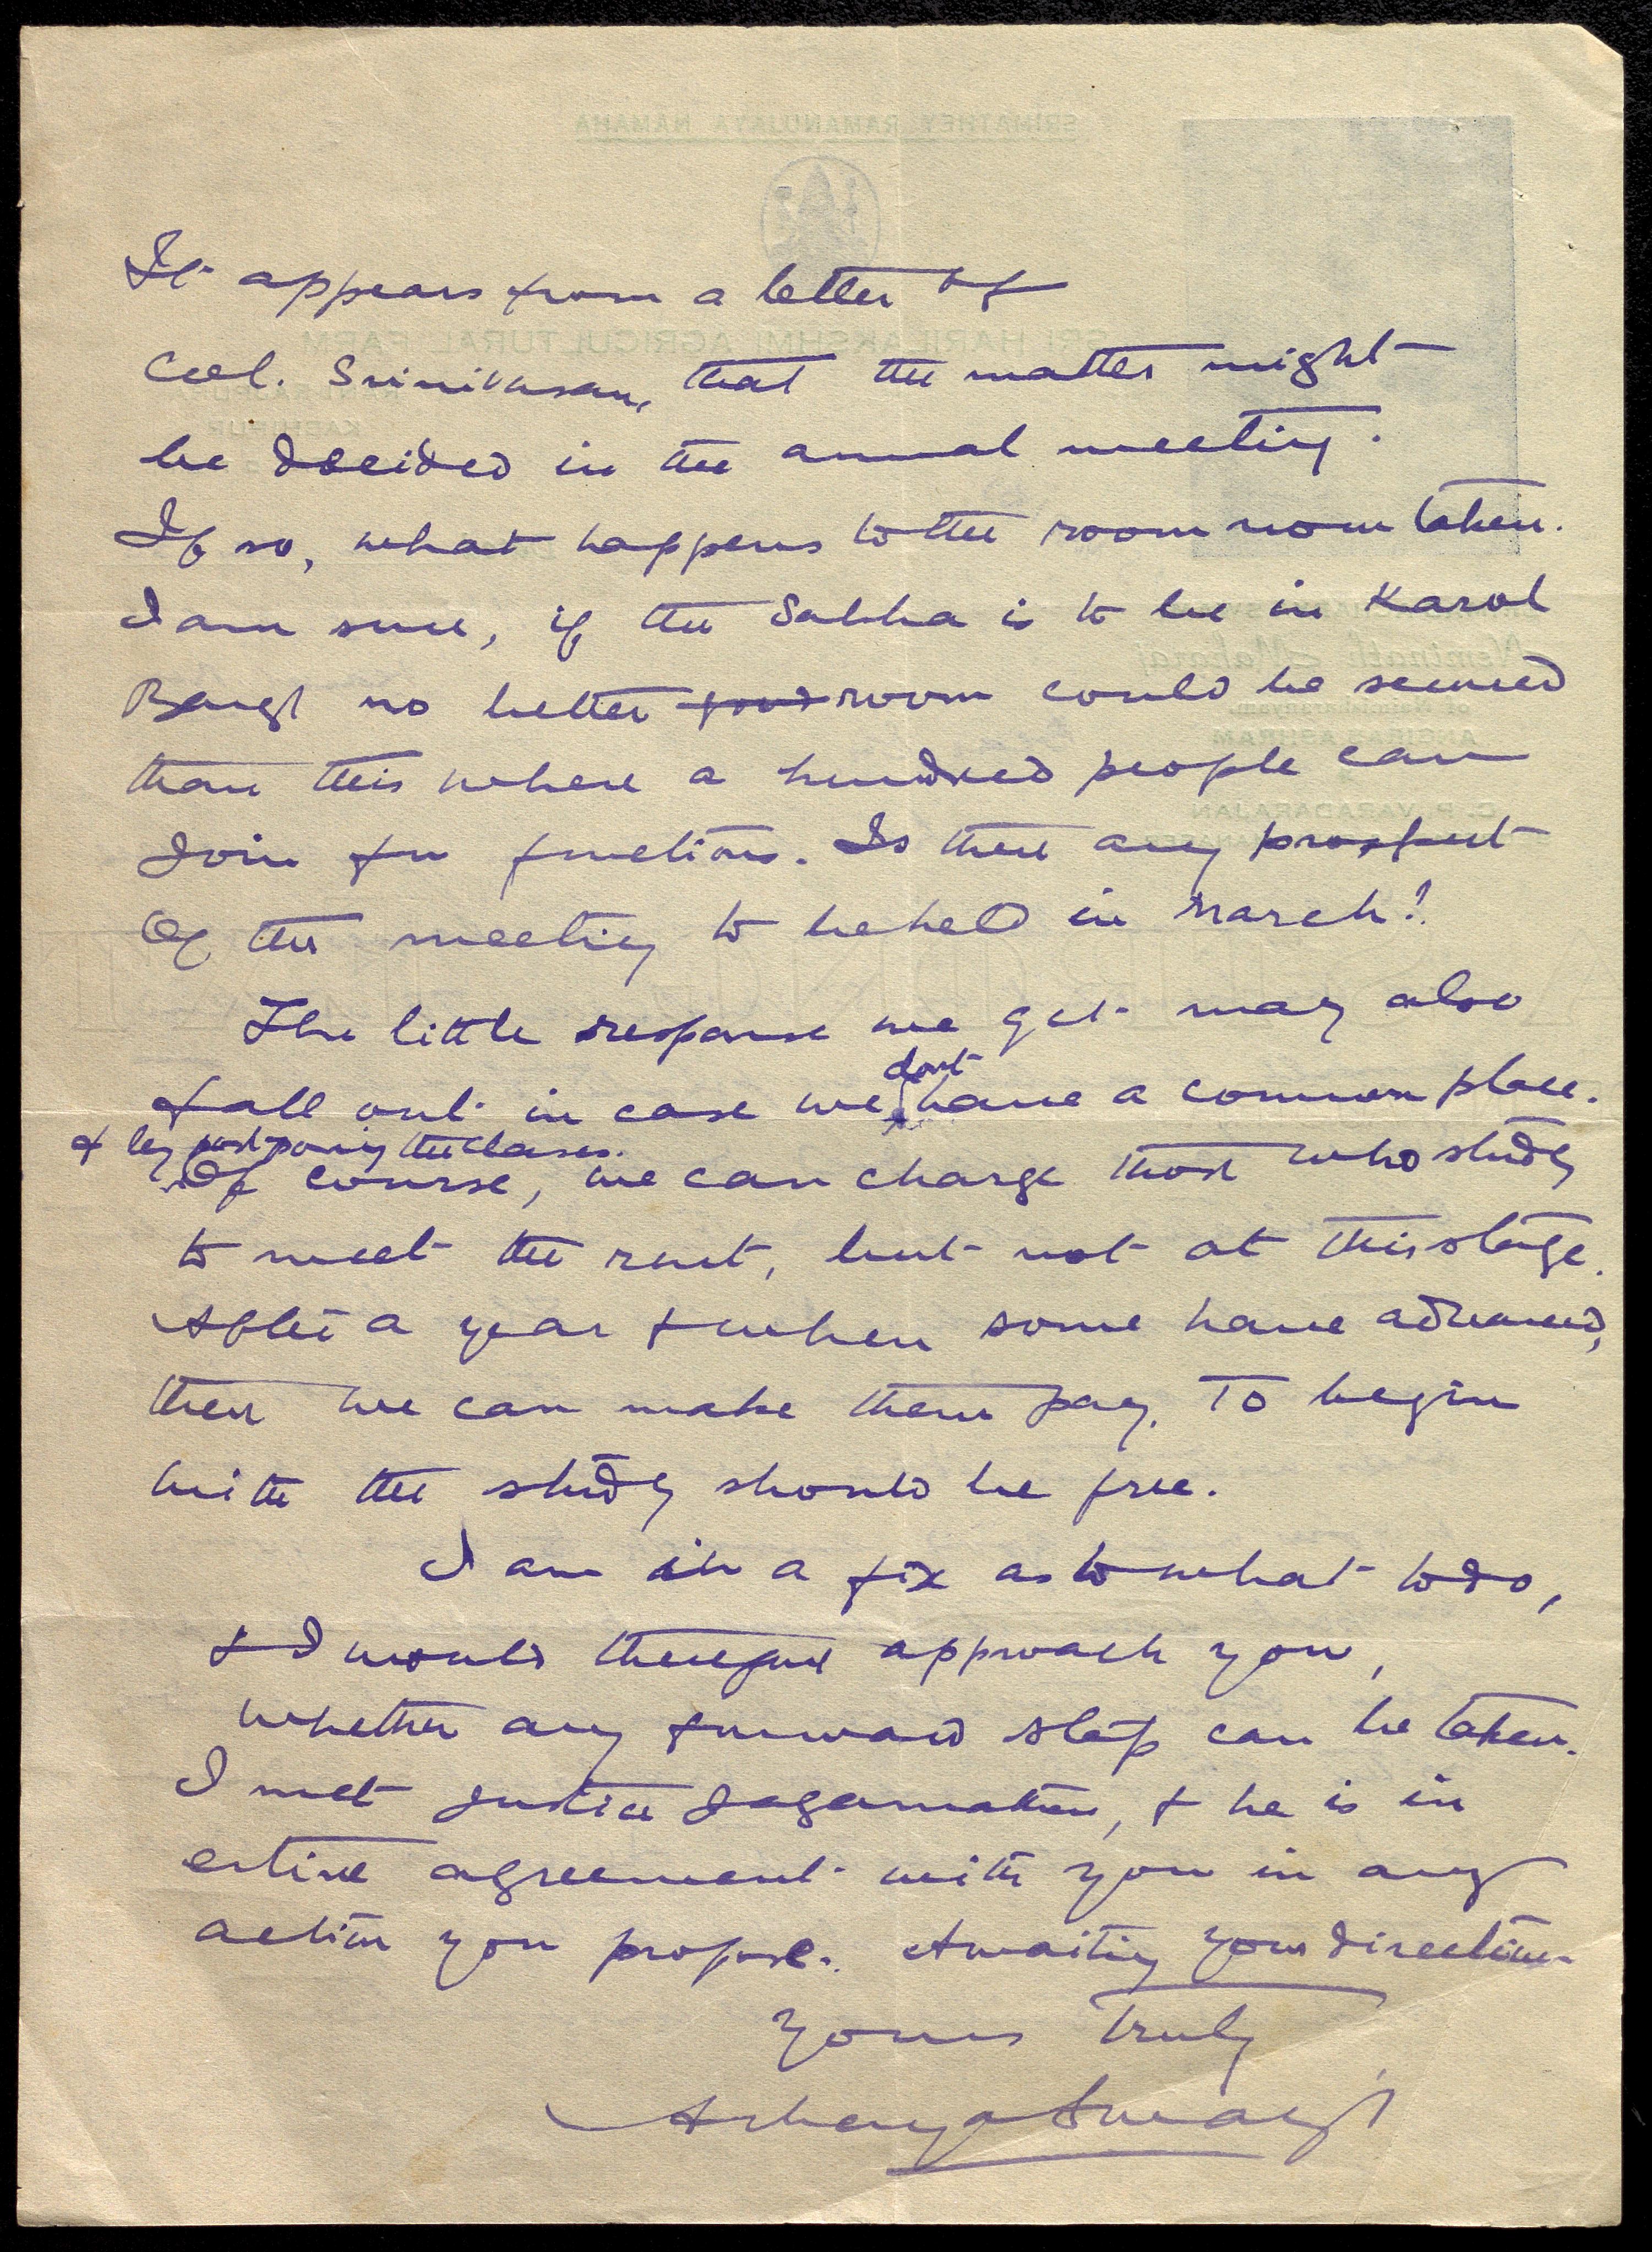 It appears from a letter of
Col. Srinivasan, that the matter might
be decided in the annual meeting.
If so, what happens to the room now taken.
I am sure, if the Sabha is to be in Karol
Bagh no better room could be secured
than this where a hundred people can
join for functions. Is there any prospect
of the meeting to be held in March?
The little response we get may also
fall out in case we dont have a common place.
& by postponing the classes.
Of course, we can charge those who study
to meet the rent, but not at this stage.
After a year & when some have advanced,
then we can make them pay. To begin
with the study should be free.
I am in a fix as to what to do,
& I would therefore approach you,
whether any forward step can be taken.
I met Justice Jagannathan, & he is in
entire agreement with you in any
action you propose. Awaiting your direction
Yours truly
SRIMATHEY RAMANUJAYA NAMAHA
SRI HARILAKSHMI AGRICULTURAL FARM
KASHIPUR
Neminath Maharaj
of Naimisharanyam.
ANGIRAS ASHRAM
C. P. VARADARAJAN